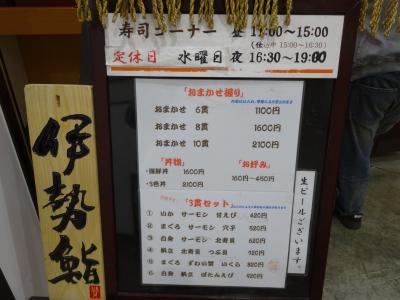 寿司コーナー 昼 11:00〜15:00
(仕込中 15:00〜16:30)
定休日 水曜日 夜 16:30〜19:00
伊勢鮨
「おまかせ握り」
おまかせ 6貫 1100円
おまかせ 8貫 1600円
おまかせ 10貫 2100円
「丼物」
・海鮮丼 1600円
・3色丼 2100円
「お好み」
160円〜450円
「3貫セット」
① いか サーモン 甘えび 420円
② まぐろ サーモン 穴子
③ 白身 サーモン 北寄貝
④ 帆立 北寄貝 つぶ貝
⑤ まぐろ ずわい蟹 いくら
⑥ 白身 帆立 ぼたんえび
生ビールございます。